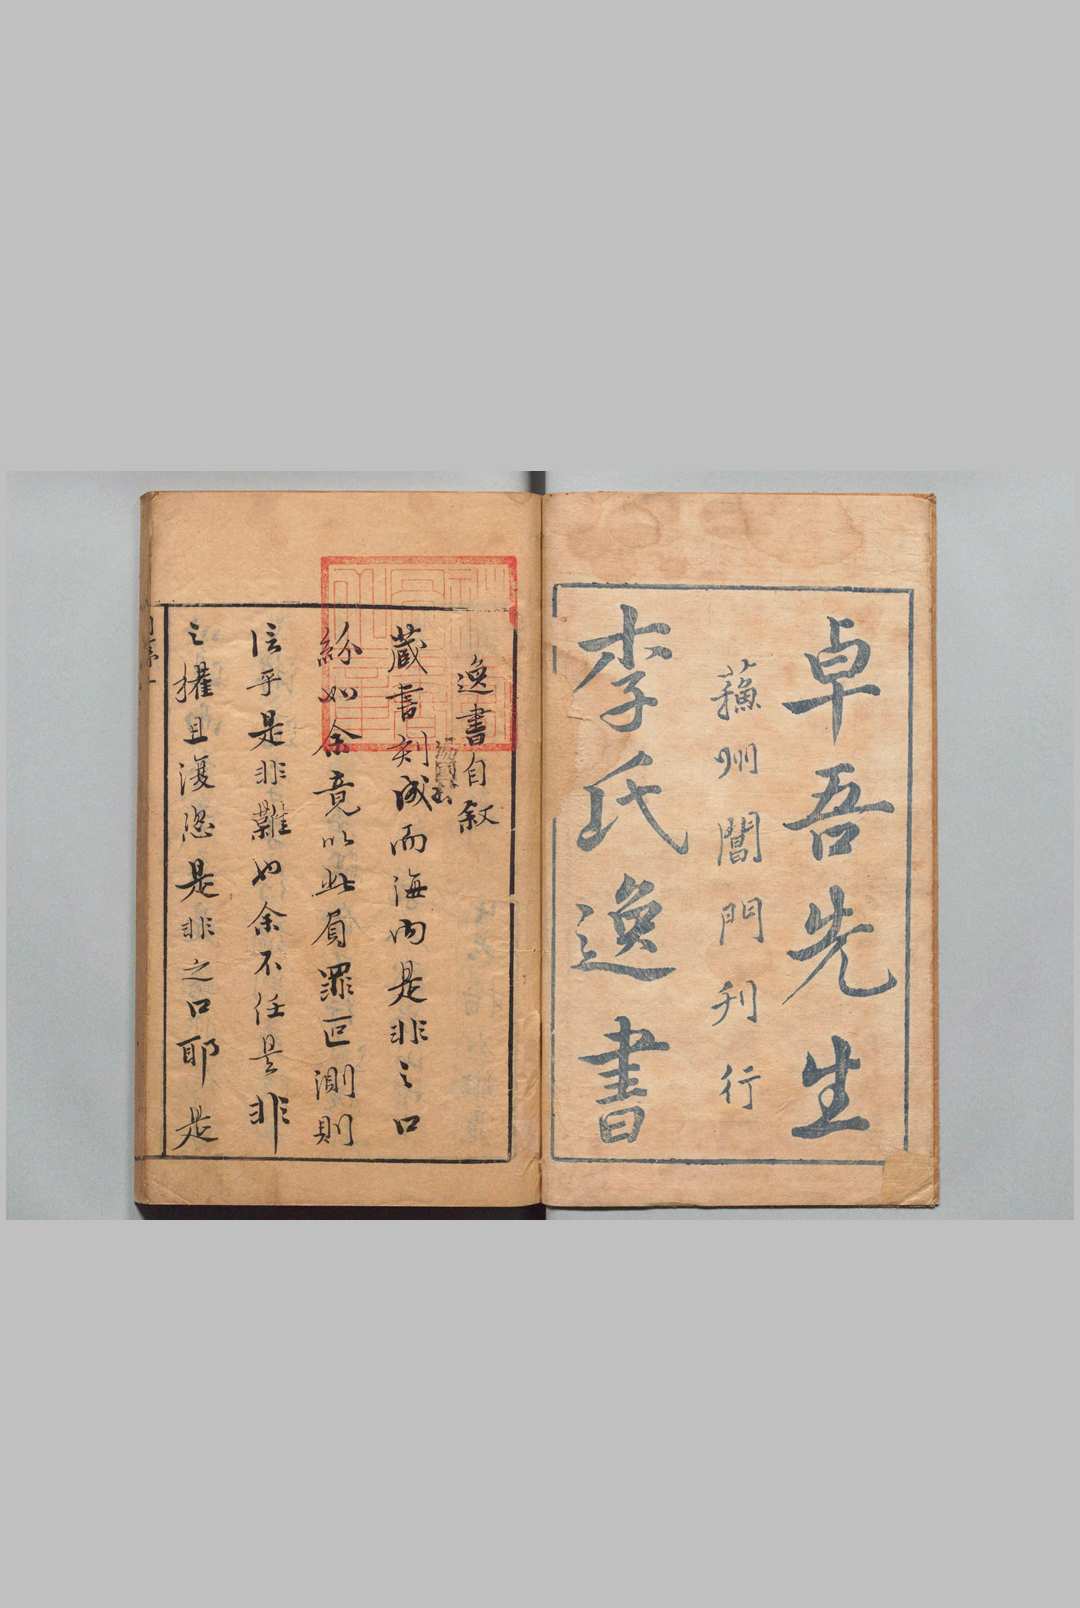 卓吾先生
蘓州閶門刊行
李氏逸書
逸書自叙
藏書刻成而海内是非之口
紛如余竟以此負罪叵測則
信乎是非難也余不任是非
之權且復恣是非之口耶是